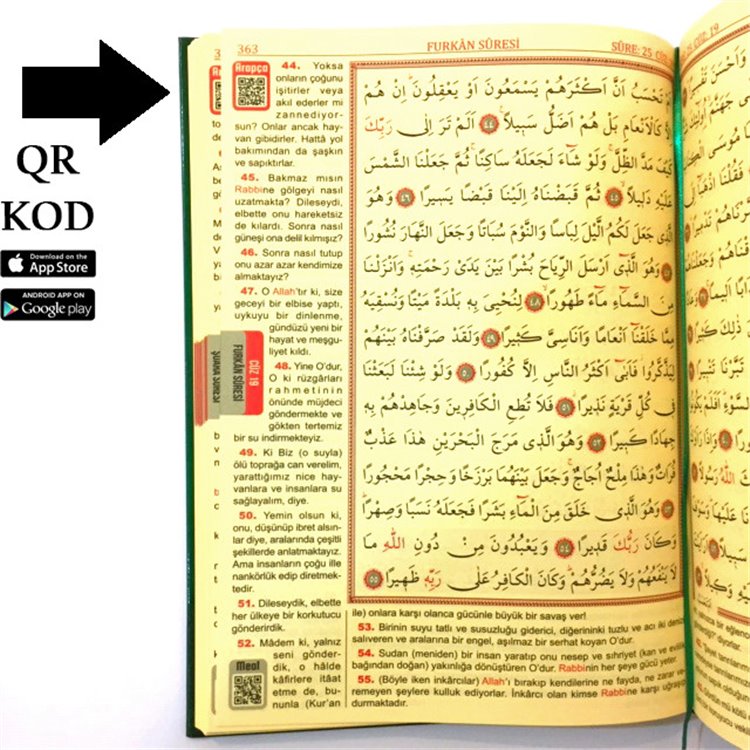 QR
KOD
Download on the
App Store
ANDROID APP ON
Google play
363
FURKÂN SÛRESİ
SÛRE: 25 CÜZ
Arapça
44. Yoksa
onların çoğunu
işitirler veya
akıl ederler mi
zannediyor-
sun? Onlar ancak hay-
van gibidirler. Hattâ yol
bakımından da şaşkın
ve sapıktırlar.
45. Bakmaz mısın
Rabbine gölgeyi nasıl
uzatmakta? Dileseydi,
elbette onu hareketsiz
de kılardı. Sonra nasıl
güneşi ona delil kılmışız?
46. Sonra nasıl tutup
onu azar azar kendimize
almaktayız?
47. O Allah'tır ki, size
geceyi bir elbise yaptı,
uykuyu bir dinlenme,
gündüzü yeni bir
hayat ve meşgu-
liyet kıldı.
48. Yine O'dur,
O ki rüzgârları
rahmetinin
önünde müjdeci
göndermekte ve
gökten tertemiz
bir su indirmekteyiz.
49. Ki Biz (o suyla)
ölü toprağa can verelim,
yarattığımız nice hay-
vanlara ve insanlara su
sağlayalım, diye.
50. Yemin olsun ki,
onu, düşünüp ibret alsın-
lar diye, aralarında çeşitli
şekillerde anlatmaktayız.
Ama insanların çoğu ille
nankörlük edip diretmek-
tedir.
51. Dileseydik, elbette
her ülkeye bir korkutucu
gönderirdik.
52. Mâdem ki, yalnız
seni gönder-
dik, o hâlde
kâfirlere itâat
etme de, bu-
nunla (Kur'an
Meal
CÜZ 19
FURKÂN SÛRESİ
ŞUARA SÛRESİ
اَمْ تَحْسَبُ اَنَّ اَكْثَرَهُمْ يَسْمَعُونَ اَوْ يَعْقِلُونَ اِنْ هُمْ
اِلَّا كَالْاَنْعَامِ بَلْ هُمْ اَضَلُّ سَبِيلًا ٤٤ اَلَمْ تَرَ اِلٰى رَبِّكَ
كَيْفَ مَدَّ الظِّلَّ وَلَوْ شَاءَ لَجَعَلَهُ سَاكِنًا ثُمَّ جَعَلْنَا الشَّمْسَ
عَلَيْهِ دَلِيلًا ٤٥ ثُمَّ قَبَضْنَاهُ اِلَيْنَا قَبْضًا يَسِيرًا ٤٦ وَهُوَ
الَّذِى جَعَلَ لَكُمُ الَّيْلَ لِبَاسًا وَالنَّوْمَ سُبَاتًا وَجَعَلَ النَّهَارَ نُشُورًا
٤٧ وَهُوَ الَّذِى اَرْسَلَ الرِّيَاحَ بُشْرًا بَيْنَ يَدَىْ رَحْمَتِهِ وَاَنْزَلْنَا
مِنَ السَّمَاءِ مَاءً طَهُورًا ٤٨ لِنُحْيِىَ بِهِ بَلْدَةً مَيْتًا وَنُسْقِيَهُ
مِمَّا خَلَقْنَا اَنْعَامًا وَاَنَاسِىَّ كَثِيرًا ٤٩ وَلَقَدْ صَرَّفْنَاهُ بَيْنَهُمْ
لِيَذَّكَّرُوا فَاَبٰى اَكْثَرُ النَّاسِ اِلَّا كُفُورًا ٥٠ وَلَوْ شِئْنَا لَبَعَثْنَا
فِى كُلِّ قَرْيَةٍ نَذِيرًا ٥١ فَلَا تُطِعِ الْكَافِرِينَ وَجَاهِدْهُمْ بِهِ
جِهَادًا كَبِيرًا ٥٢ وَهُوَ الَّذِى مَرَجَ الْبَحْرَيْنِ هٰذَا عَذْبٌ
فُرَاتٌ وَهٰذَا مِلْحٌ اُجَاجٌ وَجَعَلَ بَيْنَهُمَا بَرْزَخًا وَحِجْرًا مَحْجُورًا
٥٣ وَهُوَ الَّذِى خَلَقَ مِنَ الْمَاءِ بَشَرًا فَجَعَلَهُ نَسَبًا وَصِهْرًا
وَكَانَ رَبُّكَ قَدِيرًا ٥٤ وَيَعْبُدُونَ مِنْ دُونِ اللّٰهِ مَا
لَا يَنْفَعُهُمْ وَلَا يَضُرُّهُمْ وَكَانَ الْكَافِرُ عَلٰى رَبِّهِ ظَهِيرًا ٥٥
ile) onlara karşı olanca gücünle büyük bir savaş ver!
53. Birinin suyu tatlı ve susuzluğu giderici, diğerininki tuzlu ve acı iki deniz
salıveren ve aralarına bir engel, aşılmaz bir serhat koyan O'dur.
54. Sudan (meniden) bir insan yaratıp onu nesep ve sıhriyet (kan ve evlilik
bağından doğan) yakınlığa dönüştüren O'dur. Rabbinin her şeye gücü yeter.
55. (Böyle iken inkârcılar) Allah'ı bırakıp kendilerine ne fayda, ne zarar ve-
remeyen şeylere kulluk ediyorlar. İnkârcı olan kimse Rabbine karşı uğraşıp
durmaktadır.